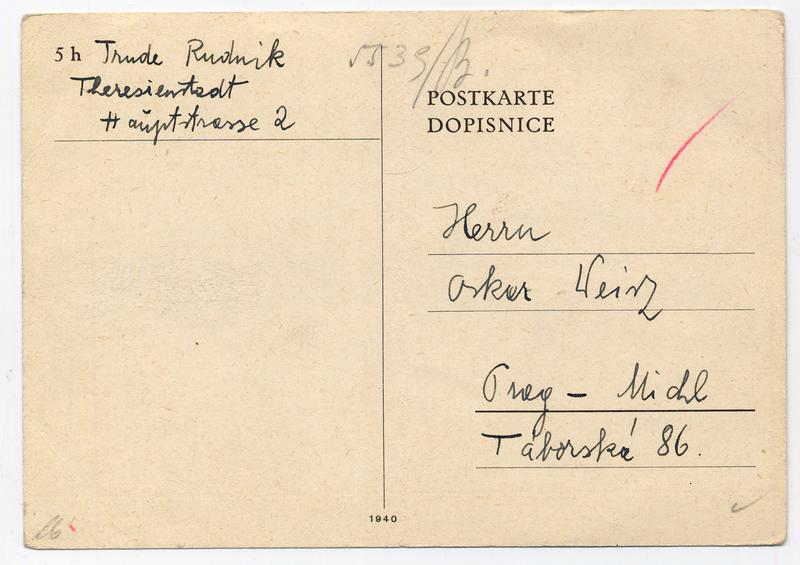 5 h Trude Rudnik
Theresienstadt
Hauptstrasse 2
5539/B.
POSTKARTE
DOPISNICE
Herrn
Oskar Weisz
Prag - Michl
Táborská 86.
1940